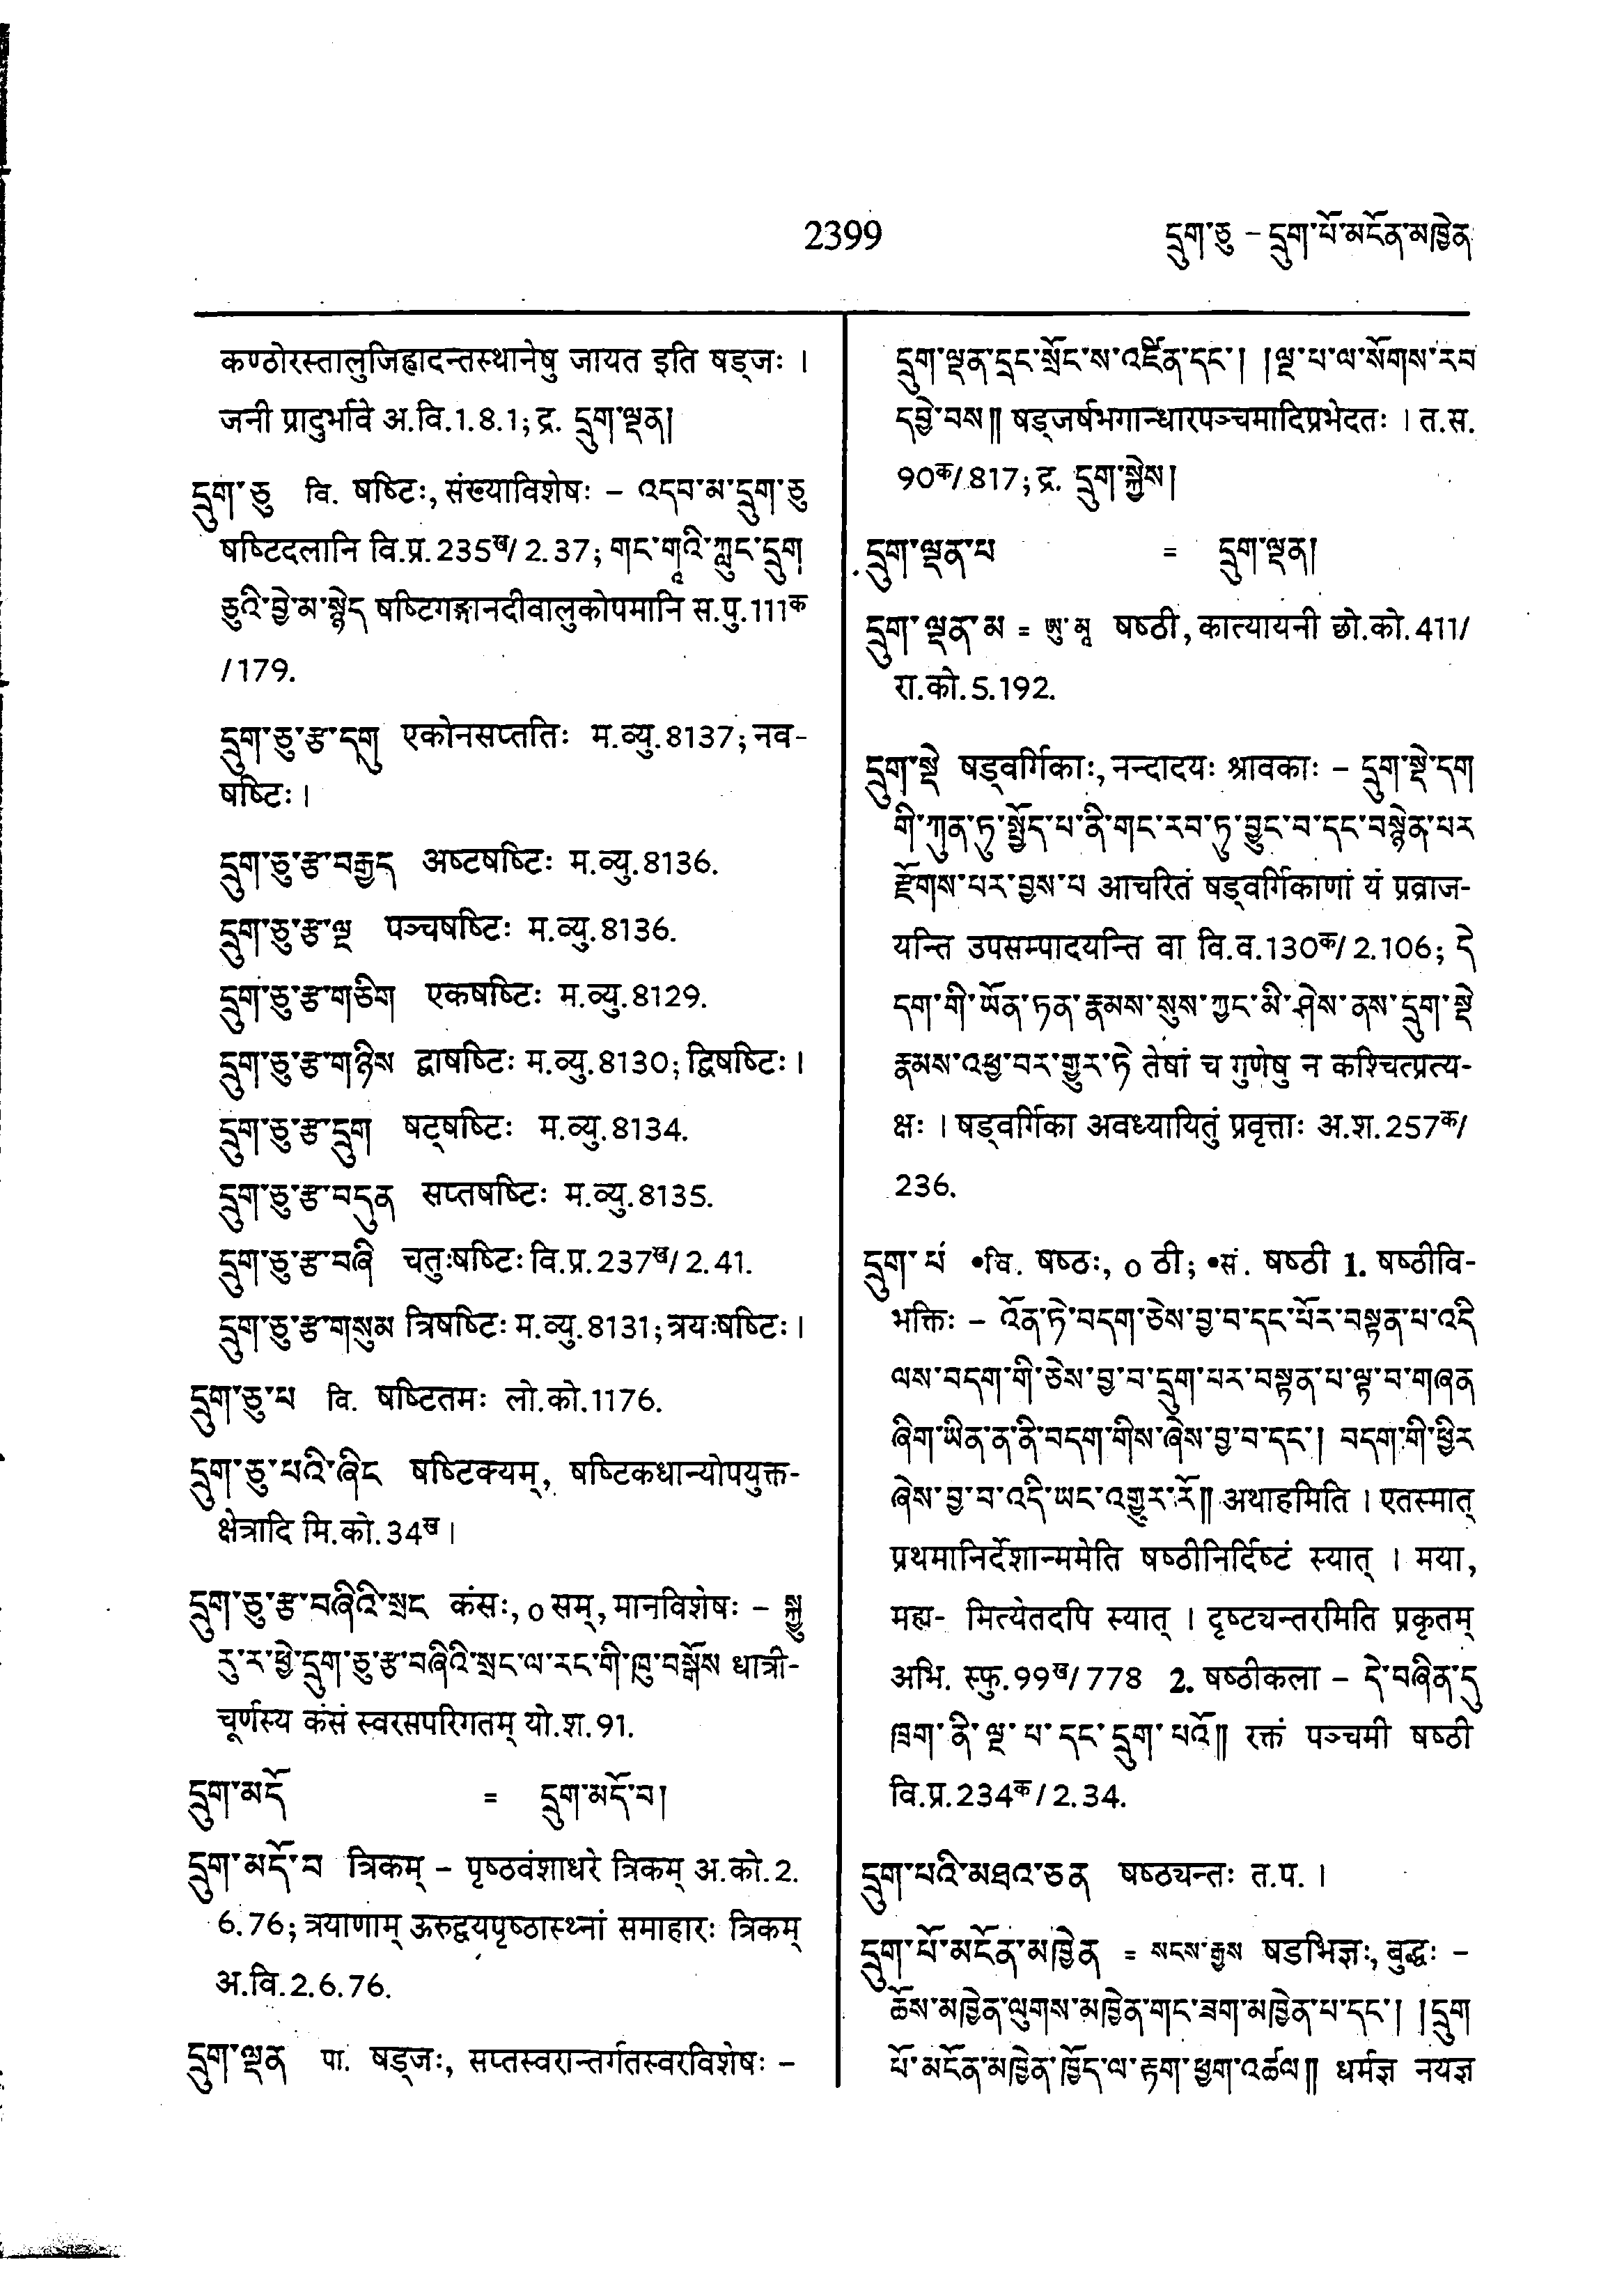 2399
དྲུག་ཅུ – དྲུག་པོ་མངོན་མཁྱེན
कण्ठोरस्तालुजिह्वादन्तस्थानेषु जायत इति षड्जः ।
जनी प्रादुर्भावे अ.वि.1.8.1; द्र. དྲུག་ལྡན།
དྲུག་ཅུ वि. षष्टिः, संख्याविशेषः – འདབ་མ་དྲུག་ཅུ
षष्टिदलानि वि.प्र.235ख/2.37; གང་གཱའི་ཀླུང་དྲུག
ཅུའི་བྱེ་མ་སྙེད षष्टिगङ्गानदीवालुकोपमानि स.पु.111क
/179.
དྲུག་ཅུ་རྩ་དགུ एकोनसप्ततिः म.व्यु.8137; नव-
षष्टिः ।
དྲུག་ཅུ་རྩ་བརྒྱད अष्टषष्टिः म.व्यु.8136.
དྲུག་ཅུ་རྩ་ལྔ पञ्चषष्टिः म.व्यु.8136.
དྲུག་ཅུ་རྩ་གཅིག एकषष्टिः म.व्यु.8129.
དྲུག་ཅུ་རྩ་གཉིས द्वाषष्टिः म.व्यु.8130; द्विषष्टिः ।
དྲུག་ཅུ་རྩ་དྲུག षट्षष्टिः म.व्यु.8134.
དྲུག་ཅུ་རྩ་བདུན सप्तषष्टिः म.व्यु.8135.
དྲུག་ཅུ་རྩ་བཞི चतुःषष्टिः वि.प्र.237ख/2.41.
དྲུག་ཅུ་རྩ་གསུམ त्रिषष्टिः म.व्यु.8131; त्रयःषष्टिः ।
དྲུག་ཅུ་པ वि. षष्टितमः लो.को.1176.
དྲུག་ཅུ་པའི་ཞིང षष्टिक्यम्, षष्टिकधान्योपयुक्त-
क्षेत्रादि मि.को.34ख ।
དྲུག་ཅུ་རྩ་བཞིའི་སྲང कंसः, ० सम्, मानविशेषः – སྐྱུ
རུ་ར་ཕྱེ་དྲུག་ཅུ་རྩ་བཞིའི་སྲང་ལ་རང་གི་ཁུ་བསྒོས धात्री-
चूर्णस्य कंसं स्वरसपरिगतम् यो.श.91.
དྲུག་མདོ = དྲུག་མདོ་བ།
དྲུག་མདོ་བ त्रिकम् – पृष्ठवंशाधरे त्रिकम् अ.को.2.
6.76; त्रयाणाम् ऊरुद्वयपृष्ठास्थ्नां समाहारः त्रिकम्
अ.वि.2.6.76.
དྲུག་ལྡན पा. षड्जः, सप्तस्वरान्तर्गतस्वरविशेषः –
དྲུག་ལྡན་དྲང་སྲོང་ས་འཛིན་དང་། །ལྔ་པ་ལ་སོགས་རབ
དབྱེ་བས༎ षड्जर्षभगान्धारपञ्चमादिप्रभेदतः । त.स.
90क/817; द्र. དྲུག་སྐྱེས།
དྲུག་ལྡན་པ = དྲུག་ལྡན།
དྲུག་ལྡན་མ = ཨུ་མཱ षष्ठी, कात्यायनी छो.को.411/
रा.को.5.192.
དྲུག་སྡེ षड्वर्गिकाः, नन्दादयः श्रावकाः – དྲུག་སྡེ་དག
གི་ཀུན་ཏུ་སྤྱོད་པ་ནི་གང་རབ་ཏུ་བྱུང་བ་དང་བསྙེན་པར
རྫོགས་པར་བྱས་པ आचरितं षड्वर्गिकाणां यं प्रव्राज-
यन्ति उपसम्पादयन्ति वा वि.व.130क/2.106; དེ
དག་གི་ཡོན་ཏན་རྣམས་སུས་ཀྱང་མི་ཤེས་ནས་དྲུག་སྡེ
རྣམས་འཕྱ་བར་གྱུར་ཏེ तेषां च गुणेषु न कश्चित्प्रत्य-
क्षः । षड्वर्गिका अवध्यायितुं प्रवृत्ताः अ.श.257क/
236.
དྲུག་པ •वि. षष्ठः, ० ठी; •सं. षष्ठी 1. षष्ठीवि-
भक्तिः – འོན་ཏེ་བདག་ཅེས་བྱ་བ་དང་པོར་བསྟན་པ་འདི
ལས་བདག་གི་ཅེས་བྱ་བ་དྲུག་པར་བསྟན་པ་ལྟ་བ་གཞན
ཞིག་ཡིན་ན་ནི་བདག་གིས་ཞེས་བྱ་བ་དང་། བདག་གི་ཕྱིར
ཞེས་བྱ་བ་འདི་ཡང་འགྱུར་རོ༎ अथाहमिति । एतस्मात्
प्रथमानिर्देशान्ममेति षष्ठीनिर्दिष्टं स्यात् । मया,
मह्य- मित्येतदपि स्यात् । दृष्ट्यन्तरमिति प्रकृतम्
अभि. स्फु.99ख/778 2. षष्ठीकला – དེ་བཞིན་དུ
ཁྲག་ནི་ལྔ་པ་དང་དྲུག་པའོ༎ रक्तं पञ्चमी षष्ठी
वि.प्र.234क/2.34.
དྲུག་པའི་མཐའ་ཅན षष्ठ्यन्तः त.प. ।
དྲུག་པོ་མངོན་མཁྱེན = སངས་རྒྱས षडभिज्ञः, बुद्धः –
ཆོས་མཁྱེན་ལུགས་མཁྱེན་གང་ཟག་མཁྱེན་པ་དང་། །དྲུག
པོ་མངོན་མཁྱེན་ཁྱོད་ལ་རྟག་ཕྱག་འཚལ༎ धर्मज्ञ नयज्ञ